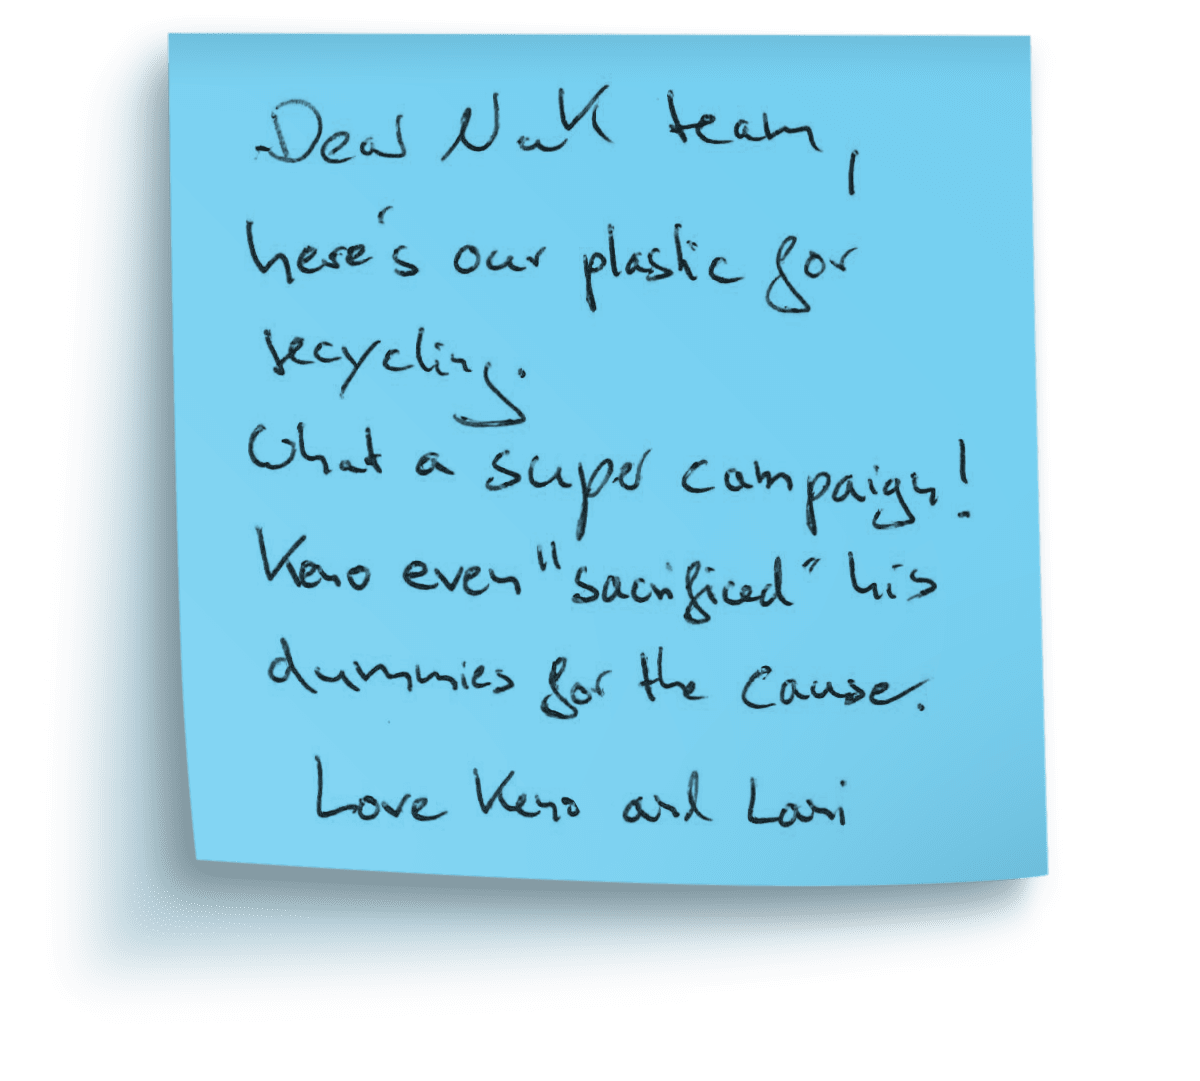 Dear NuK team,
here's our plastic for
recycling.
What a super campaign!
Keno even "sacrificed" his
dummies for the cause.
Love Keno and Lani